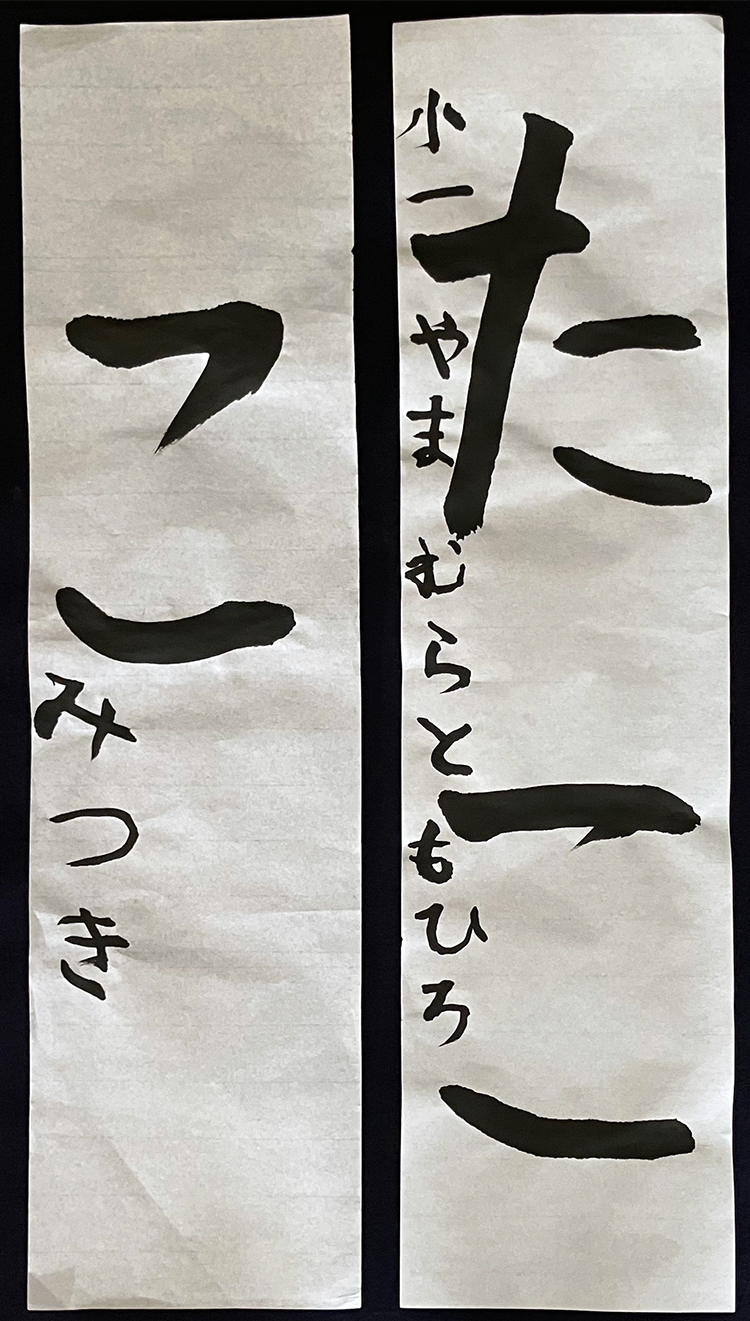 たこ
小一 やまむらともひろ
こ
みつき